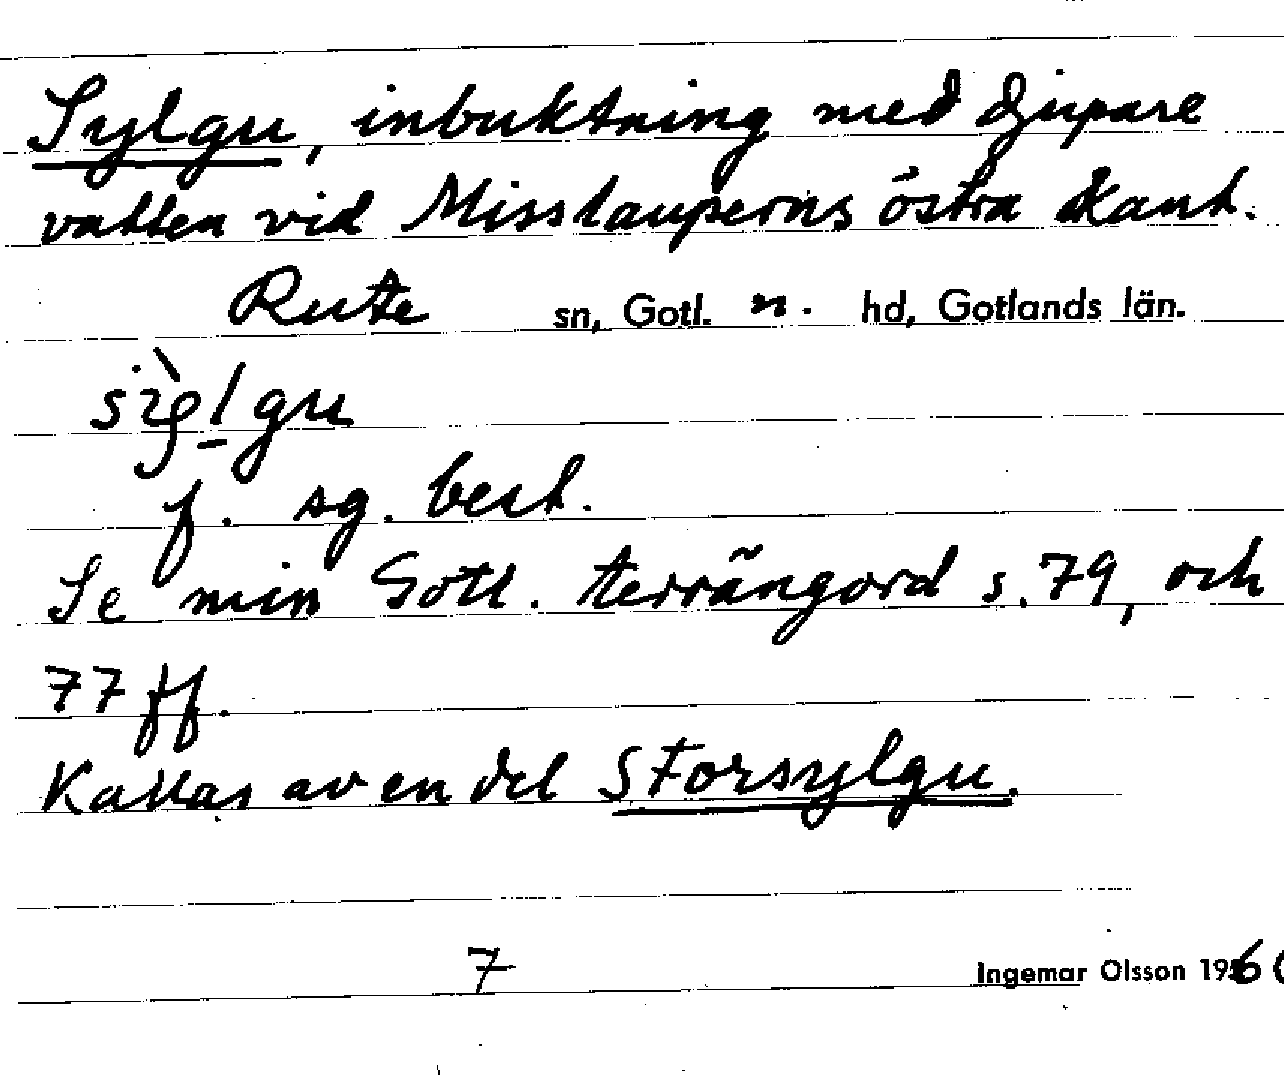 Sylgu, inbuktning med djupare
vatten vid Misslauperns östra kant.
Rute sn, Gotl. n. hd, Gotlands län.
f. sg. best.
Se min Gotl. terrängord s. 79, och
77 ff.
Kallas av en del Storsylgu.
7
Ingemar Olsson 1960